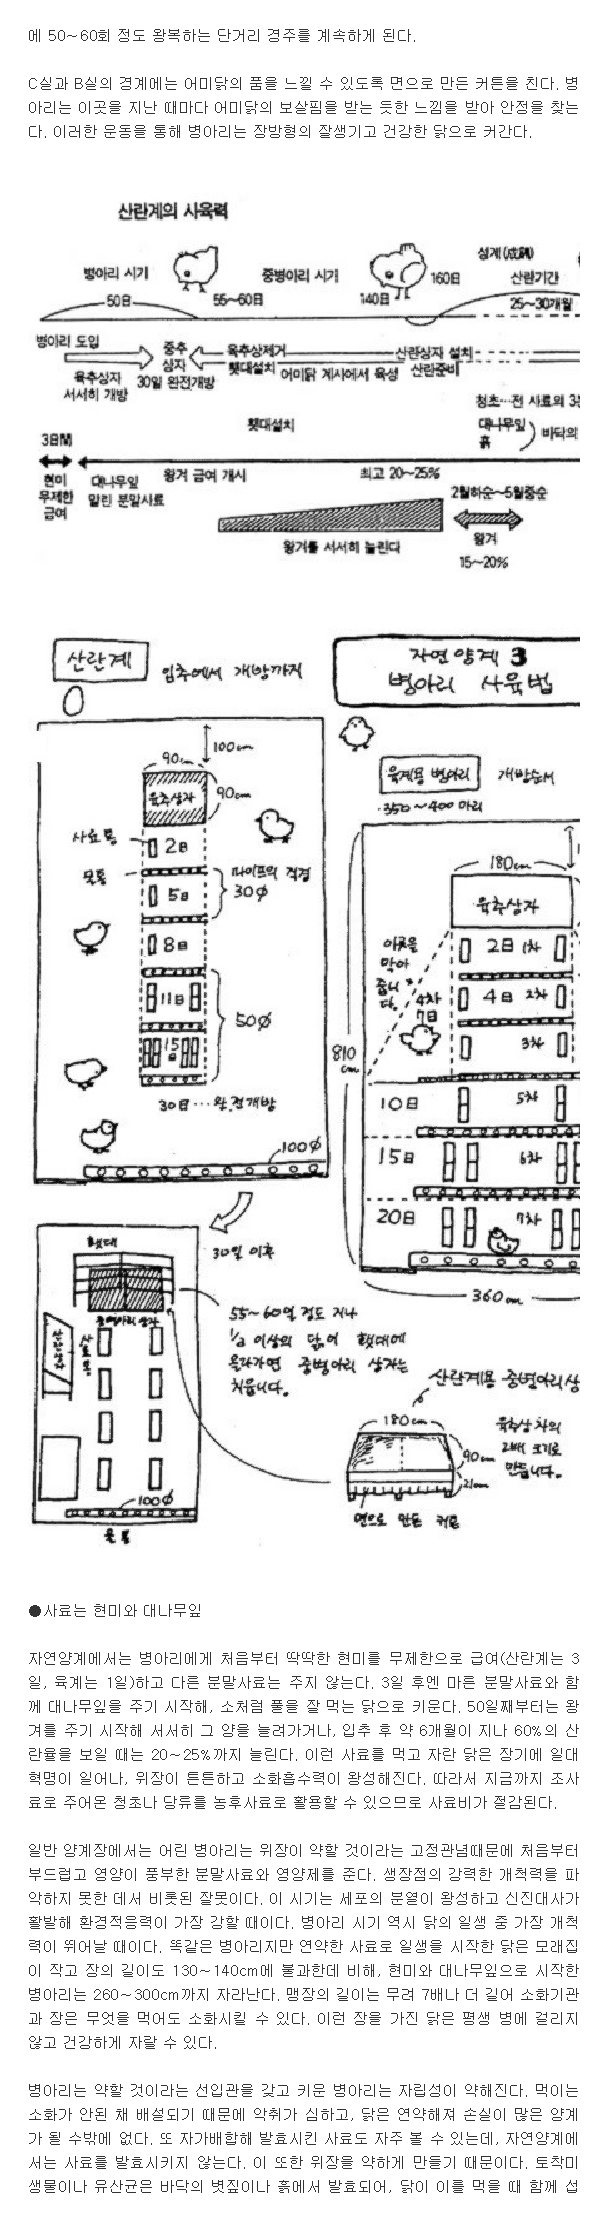 에 50~60회 정도 왕복하는 단거리 경주를 계속하게 된다.
C실과 B실의 경계에는 어미닭의 품을 느낄 수 있도록 면으로 만든 커튼을 친다. 병
아리는 이곳을 지난 때마다 어미닭의 보살핌을 받는 듯한 느낌을 받아 안정을 찾는
다. 이러한 운동을 통해 병아리는 장방형의 잘생기고 건강한 닭으로 커간다.
산란계의 사육력
병아리 시기
중병아리 시기
성계(成鷄)
산란기간
50日
55~60日
140日
160日
25~30개월
병아리 도입
육추상자
서서히 개방
중추
상자
30일 완전개방
육추상제거
횃대설치
어미닭 계사에서 육성
산란상자 설치
산란준비
청초…전 사료의 3
3日間
횃대설치
대나무잎
흙
바닥의
현미
무제한
급여
대나무잎
말린 분말사료
왕겨 급여 개시
최고 20~25%
2월하순~5월중순
왕겨를 서서히 늘린다
왕겨
15~20%
산란계
입추에서 개방까지
자연양계 3
병아리 사육법
100cm
90cm
90cm
육추상자
사료통
물통
2日
5日
8日
11日
15日
파이프의 직경
30φ
50φ
30日…완전개방
100φ
육계용 병아리
개방순서
350~400 마리
180cm
육추상자
이곳을
막아
줍니다.
4차
7日
2日 1차
4日 2차
3차
10日 5차
15日 6차
20日 7차
810cm
360cm
30일 이후
횃대
중병아리 상자
100φ
물통
55~60일 정도 지나
1/2 이상의 닭이 횃대에
올라가면 중병아리 상자는
치웁니다.
산란계용 중병아리상
180cm
90cm
21cm
육추상자의
2배 크기로
만듭니다.
면으로 만든 커튼
●사료는 현미와 대나무잎
자연양계에서는 병아리에게 처음부터 딱딱한 현미를 무제한으로 급여(산란계는 3
일, 육계는 1일)하고 다른 분말사료는 주지 않는다. 3일 후엔 마른 분말사료와 함
께 대나무잎을 주기 시작해, 소처럼 풀을 잘 먹는 닭으로 키운다. 50일째부터는 왕
겨를 주기 시작해 서서히 그 양을 늘려가거나, 입추 후 약 6개월이 지나 60%의 산
란율을 보일 때는 20~25%까지 늘린다. 이런 사료를 먹고 자란 닭은 장기에 일대
혁명이 일어나, 위장이 튼튼하고 소화흡수력이 왕성해진다. 따라서 지금까지 조사
료로 주어온 청초나 당류를 농후사료로 활용할 수 있으므로 사료비가 절감된다.
일반 양계장에서는 어린 병아리는 위장이 약할 것이라는 고정관념때문에 처음부터
부드럽고 영양이 풍부한 분말사료와 영양제를 준다. 생장점의 강력한 개척력을 파
악하지 못한 데서 비롯된 잘못이다. 이 시기는 세포의 분열이 왕성하고 신진대사가
활발해 환경적응력이 가장 강할 때이다. 병아리 시기 역시 닭의 일생 중 가장 개척
력이 뛰어날 때이다. 똑같은 병아리지만 연약한 사료로 일생을 시작한 닭은 모래집
이 작고 장의 길이도 130~140cm에 불과한데 비해, 현미와 대나무잎으로 시작한
병아리는 260~300cm까지 자라난다. 맹장의 길이는 무려 7배나 더 길어 소화기관
과 장은 무엇을 먹어도 소화시킬 수 있다. 이런 장을 가진 닭은 평생 병에 걸리지
않고 건강하게 자랄 수 있다.
병아리는 약할 것이라는 선입관을 갖고 키운 병아리는 자립성이 약해진다. 먹이는
소화가 안된 채 배설되기 때문에 악취가 심하고, 닭은 연약해져 손실이 많은 양계
가 될 수밖에 없다. 또 자가배합해 발효시킨 사료도 자주 볼 수 있는데, 자연양계에
서는 사료를 발효시키지 않는다. 이 또한 위장을 약하게 만들기 때문이다. 토착미
생물이나 유산균은 바닥의 볏짚이나 흙에서 발효되어, 닭이 이를 먹을 때 함께 섭